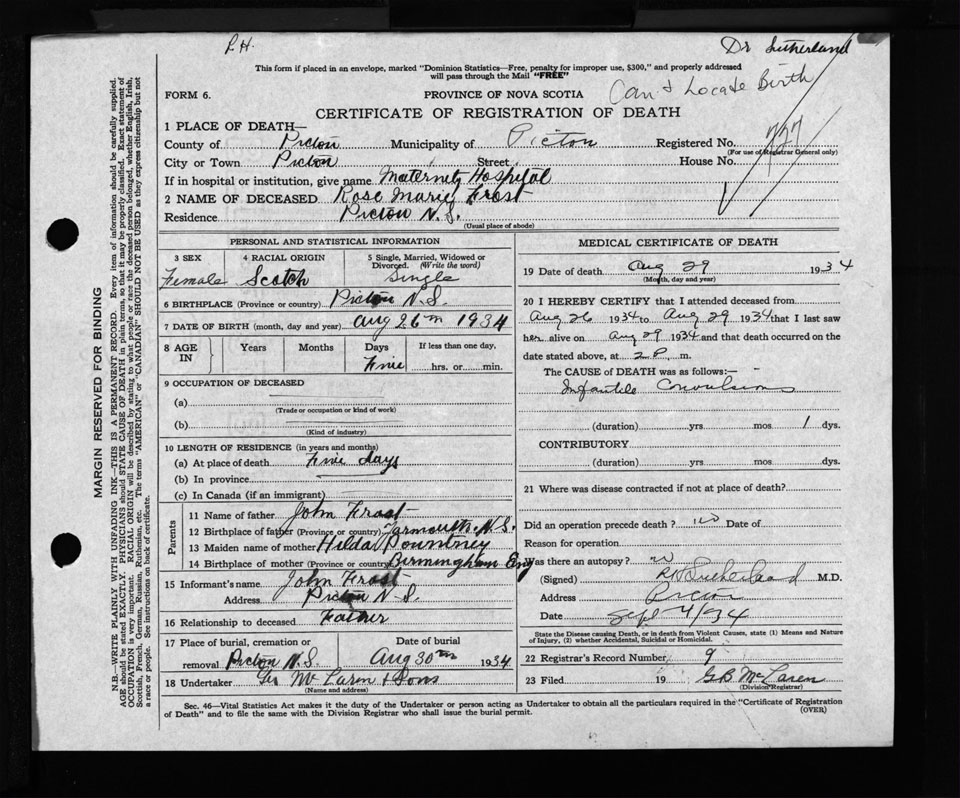 P.H. Dr Sutherland
This form if placed in an envelope, marked "Dominion Statistics—Free, penalty for improper use, $300," and properly addressed
will pass through the Mail "FREE"
FORM 6. PROVINCE OF NOVA SCOTIA Can't Locate Birth
CERTIFICATE OF REGISTRATION OF DEATH
1 PLACE OF DEATH—
County of Pictou Municipality of Pictou Registered No. 727
(For use of Registrar General only)
City or Town Pictou Street House No.
If in hospital or institution, give name Maternity Hospital
2 NAME OF DECEASED Rose Marie Frost
Residence Pictou N.S.
(Usual place of abode)
PERSONAL AND STATISTICAL INFORMATION
3 SEX 4 RACIAL ORIGIN 5 Single, Married, Widowed or
Divorced. (Write the word)
Female Scotch Single
6 BIRTHPLACE (Province or country) Pictou N.S.
7 DATE OF BIRTH (month, day and year) Aug 26th 1934
8 AGE IN Years Months Days If less than one day,
Five hrs. or min.
9 OCCUPATION OF DECEASED
(a)
(Trade or occupation or kind of work)
(b)
(Kind of industry)
10 LENGTH OF RESIDENCE (in years and months)
(a) At place of death Five days
(b) In province
(c) In Canada (if an immigrant)
Parents
11 Name of father John Frost
12 Birthplace of father (Province or country) Yarmouth. N.S.
13 Maiden name of mother Hilda Pountney
14 Birthplace of mother (Province or country) Birmingham Eng
15 Informant's name John Frost
Address Pictou N.S.
16 Relationship to deceased Father
17 Place of burial, cremation or Date of burial
removal Pictou N.S. Aug 30th 1934
18 Undertaker Geo McLaren & Sons
(Name and address)
MEDICAL CERTIFICATE OF DEATH
19 Date of death Aug 29 1934
(Month, day and year)
20 I HEREBY CERTIFY that I attended deceased from
Aug 26 1934 to Aug 29 1934 that I last saw
her alive on Aug 29 1934 and that death occurred on the
date stated above, at 2 P. m.
The CAUSE of DEATH was as follows:—
Infantile Convulsions
(duration) yrs mos 1 dys.
CONTRIBUTORY
(duration) yrs. mos. dys.
21 Where was disease contracted if not at place of death?
Did an operation precede death? no Date of
Reason for operation
Was there an autopsy? no
(Signed) Sutherland M.D.
Address Pictou
Date Sept 4/34
State the Disease causing Death, or in death from Violent Causes, state (1) Means and Nature
of Injury, (2) whether Accidental, Suicidal or Homicidal.
22 Registrar's Record Number 9
23 Filed 19 G.B. McLaren
(Division Registrar)
Sec. 46—Vital Statistics Act makes it the duty of the Undertaker or person acting as Undertaker to obtain all the particulars required in the "Certificate of Registration
of Death" and to file the same with the Division Registrar who shall issue the burial permit. (OVER)
MARGIN RESERVED FOR BINDING
N.B.—WRITE PLAINLY WITH UNFADING INK—THIS IS A PERMANENT RECORD. Every item of information should be carefully supplied.
AGE should be stated EXACTLY. PHYSICIANS should STATE CAUSE OF DEATH in plain terms, so that it may be properly classified. Exact statement of
OCCUPATION is very important. RACIAL ORIGIN will be described by stating to what people or race the deceased person belonged, whether English, Irish,
Scottish, French, German, Russian, Ruthenian, etc. The terms "AMERICAN" or "CANADIAN" SHOULD NOT BE USED as they express citizenship but not
a race or people. See instructions on back of certificate.